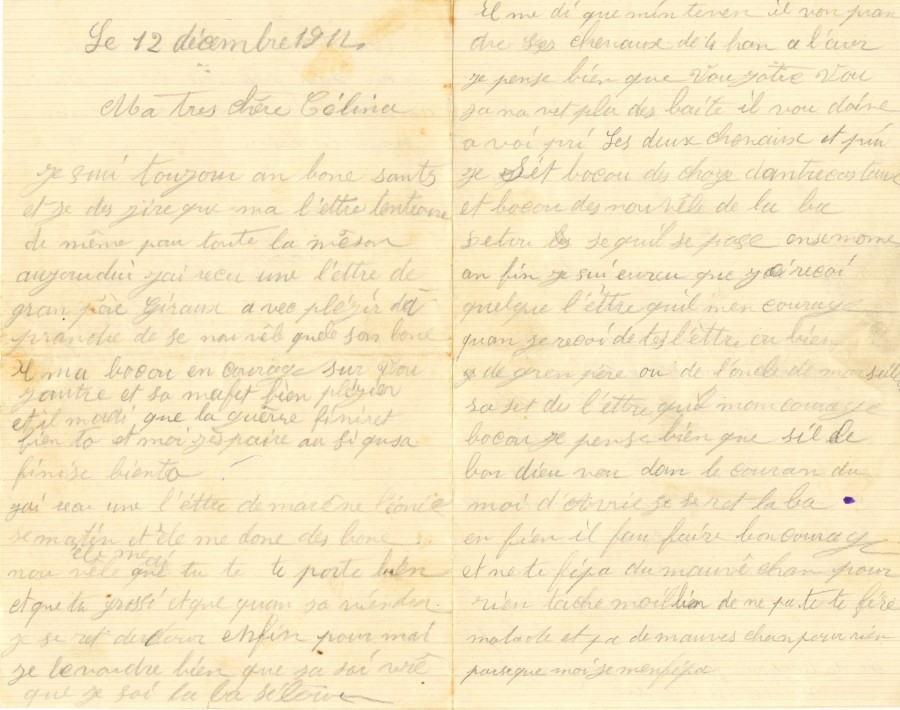 Le 12 décembre 191
Ma tres chère Célina
je sui toujour an bone santé
et je des zire que ma l'ettre
de même pau toute la mêson
aujourdui j'ai recu une l'ettre de
gran père Giraux avec plézir da
prandre de se nou vèle quele son bone
Il ma bocou en courage sur vou
zautre et sa mafet bien plézier
et il madi que la guêrre finiret
bien to et moi zéspaire au si que sa
finise biento
jai recu une l'éttre de marène Léonie
se matin et éle me done des bone
nou vèle éle me di que tu te te porte bien
et que tu grossi et que quan sa viendra
je se ret de retour enfin pour moi
je le voudré bien que sa soi vrè
que je soi la ba
il me di que min tenen il von pran
dre les chevaux de 4 han a l'aver
je pense bien que vou zotre vou
za na vet plu des baite il vou
a voi pri les deux chevaux et pui
je bocou des choze dantrecas
et bocou des nouvèle de la ba
se quil se pase ensemome
an fin je sui eureu que j'ai recoi
quelque l'éttre quil men courage
quan je recoi de tes l'éttre ou bien
de gren père ou de l'oncle de marseille
sa set des l'éttre quil mon courage
bocou je pense bien que sil le
bon dieu vou dan le couran du
moi d'Avrie je se ret la ba
en fien il fau faire bon courage
et ne te fépa du mauvê chan pour
rien tache mou bien de ne pa te te fére
malade et pa de mauves chan pour rien
parseque moi je men fépa